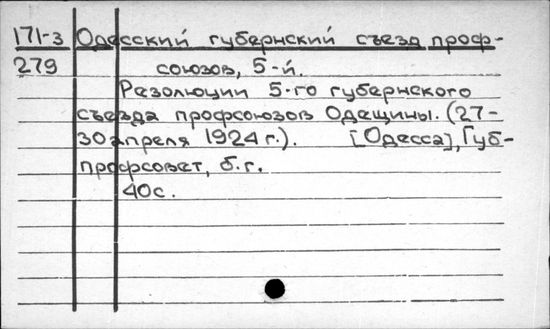 171-3 Одесский губернский съезд проф-
279 союзов, 5-й.
Резолюции 5-го губернского
съезда профсоюзов Одещины. (27-
30 апреля 1924 г.). [Одесса], Губ-
профсовет, б.г.
40с.